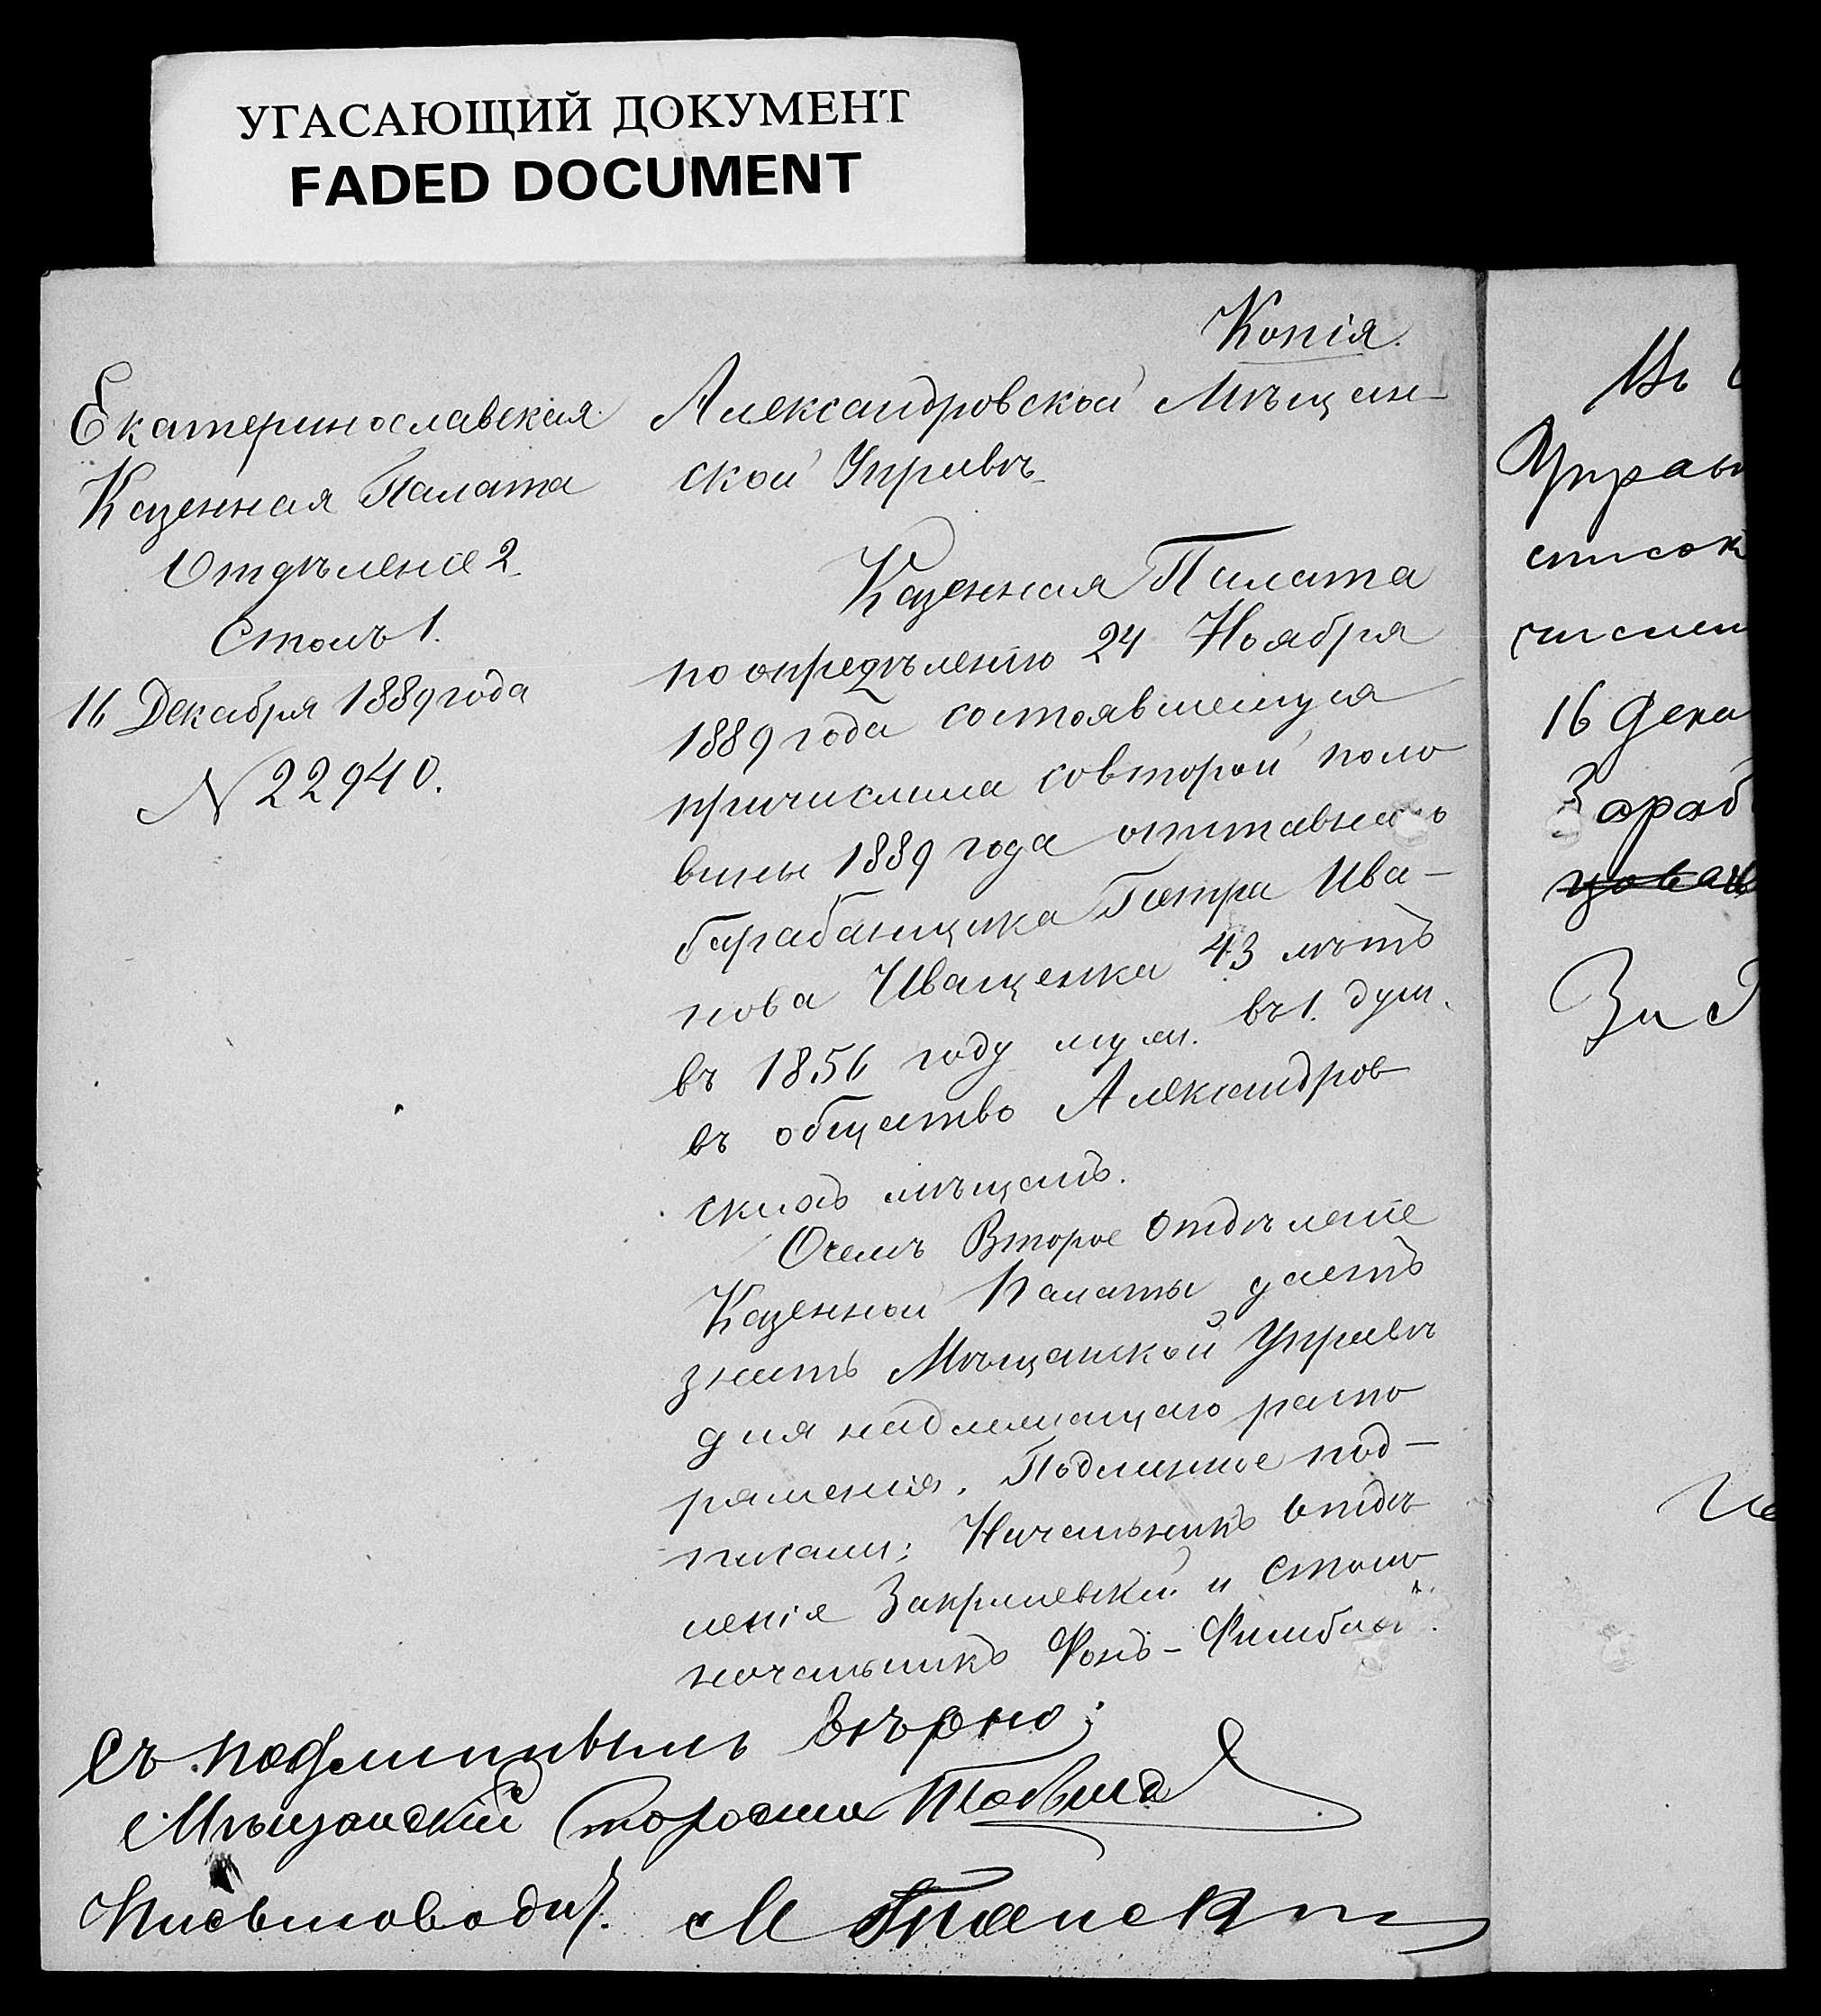 УГАСАЮЩИЙ ДОКУМЕНТ
FADED DOCUMENT
Копія.
Екатеринославская
Казенная Палата
Отдѣленіе 2
Столъ 1.
16 Декабря 1889 года
N 22940.
Александровской Мѣщан-
ской Управѣ
Казенная Палата
по опредѣленію 24 Ноября
1889 года состоявшемуся
причислила со второй поло
вины 1889 года отставнаго
барабанщика Петра Ива-
нова Иващенка 43 лѣтъ
въ 1856 году муж. въ 1. душ.
въ общество Александров
скихъ мѣщанъ.
О чемъ Второе Отдѣленіе
Казенной Палаты даетъ
знать Мѣщанской Управѣ
для надлежащаго распо
ряженія. Подлинное под-
писали: Начальникъ Отдѣ
ленія Закржевскій и Столо
начальникъ Фонъ-
Съ подлиннымъ вѣрно:
Мѣщанскій Староста
Письмоводит.
Въ
Управ
список
числен
16 Дека
За